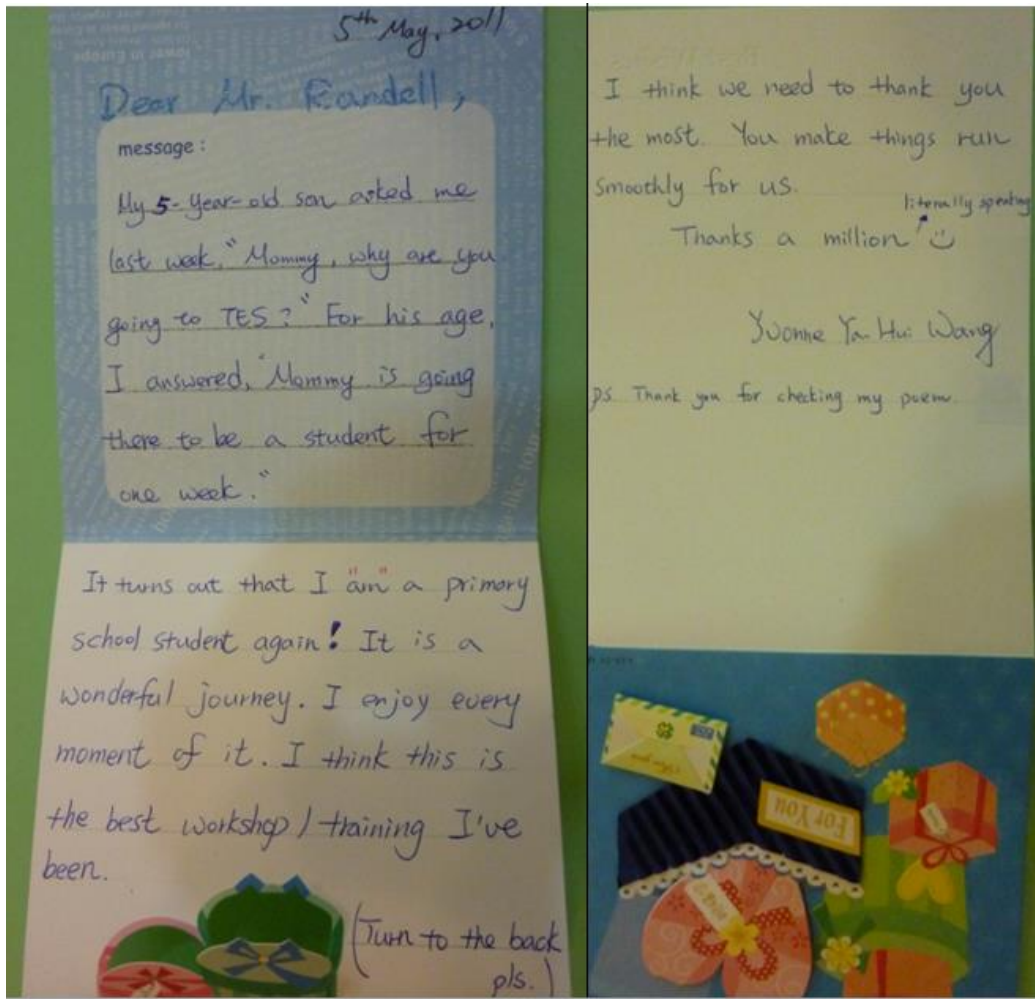 5th May, 2011
Dear Mr. Randell,
message:
My 5-year-old son asked me
last week, "Mommy, why are you
going to TES?" For his age,
I answered, "Mommy is going
there to be a student for
one week."
It turns out that I "am" a primary
school student again! It is a
wonderful journey. I enjoy every
moment of it. I think this is
the best workshop/training I've
been.
(Turn to the back
pls.)
I think we need to thank you
the most. You make things run
smoothly for us.
literally speaking
Thanks a million!
Yvonne Ya-Hui Wang
ps. Thank you for checking my poem.
For You